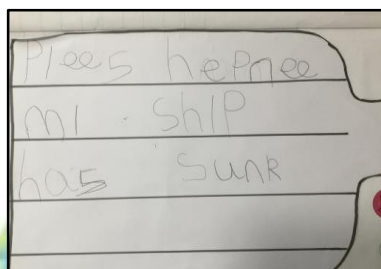 Plees hepmee
mi . ShIP
has Sunk